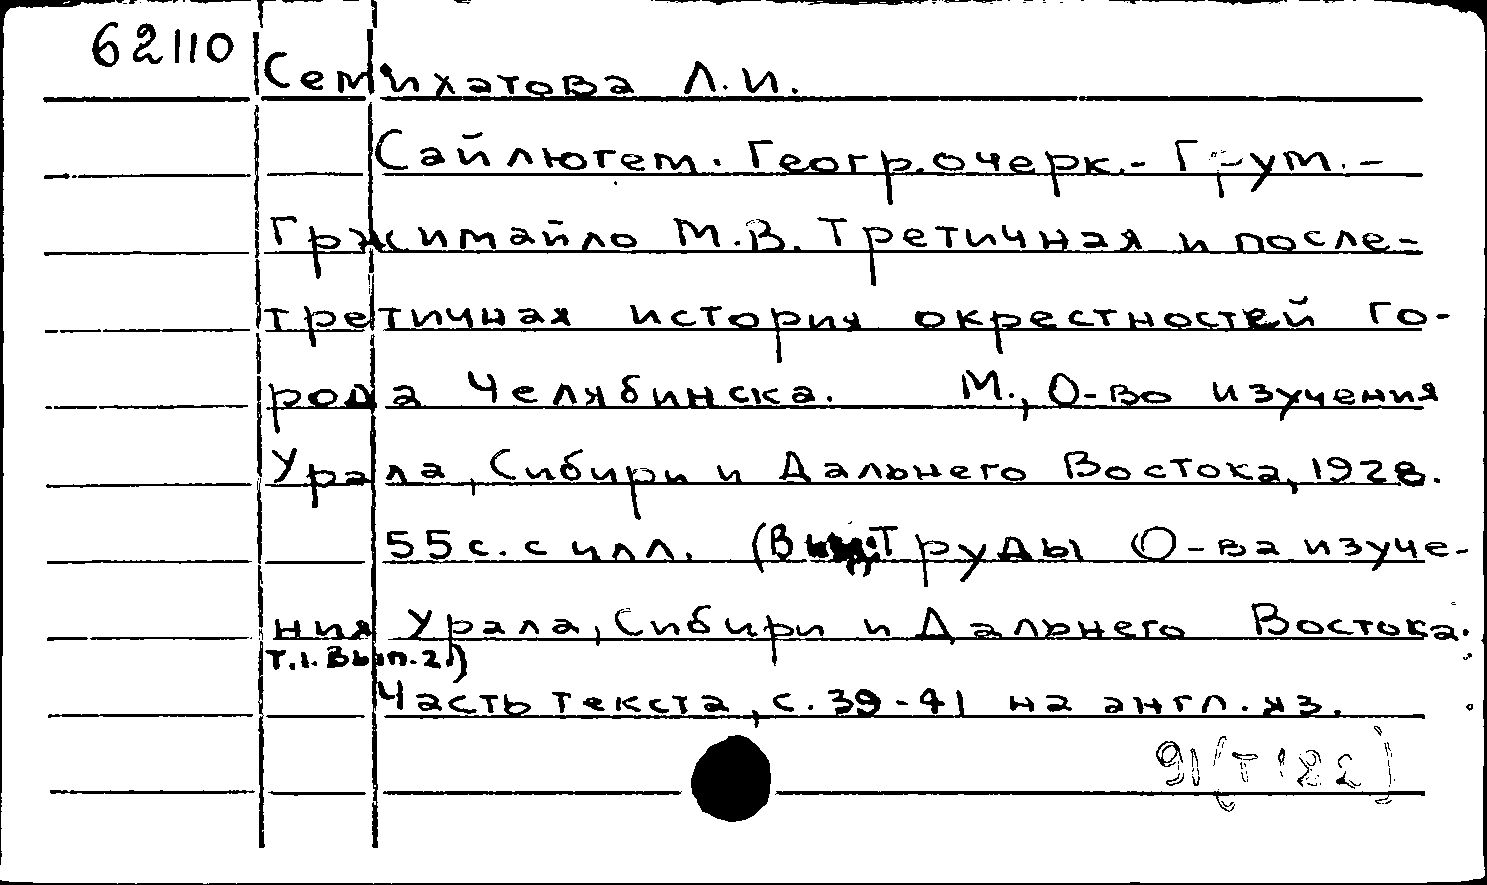 62110
Семихатова Л.И.
Сайлюгем. Геогр.очерк.- Грум.-
Гржимайло М.В. Третичная и после-
третичная история окрестностей го-
рода Челябинска. М., О-во изучения
Урала, Сибири и Дальнего Востока, 1928.
55с. с илл. (Труды О-ва изуче-
ния Урала, Сибири и Дальнего Востока.
т.1. Вып.2.)
Часть текста, с. 39-41 на англ. яз.